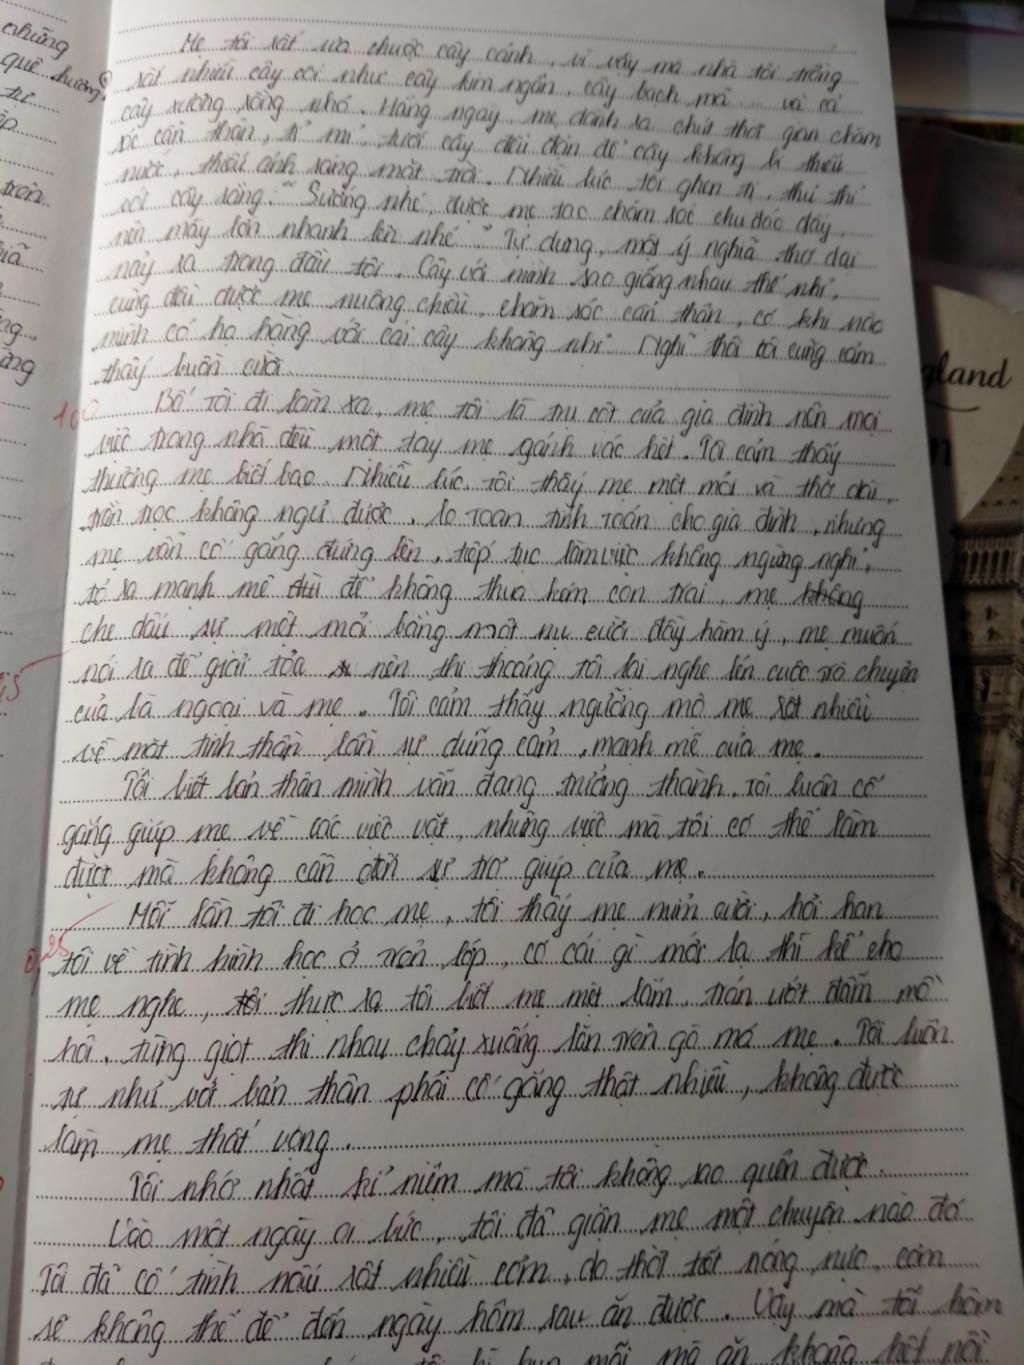 những
quê hương
tư
trên
Mẹ tôi rất ưa chuộc cây cảnh, vì vậy mà nhà tôi trồng
rất nhiều cây cối như cây kim ngân, cây bạch mã ... và cả
cây xương rồng nhỏ. Hàng ngày, mẹ dành ra chút thời gian chăm
cẩn thận, tỉ mỉ, tưới cây đều đặn để cây không bị thiếu
nước, thiếu ánh sáng mặt trời. Nhiều lúc tôi ghen tị, thủ thỉ
với cây rằng: "Sướng nhé, được mẹ tao chăm sóc chu đáo đấy,
nên mày lớn nhanh lên nhé." Tự dưng, một ý nghĩa thơ dại
nảy ra trong đầu tôi. Cây với mình sao giống nhau thế nhỉ,
cùng đều được mẹ nuông chiều, chăm sóc cẩn thận, có khi nào
mình có họ hàng với cái cây không nhỉ. Nghĩ thôi tôi cũng cảm
thấy buồn cười.
Bố tôi đi làm xa, mẹ tôi là trụ cột của gia đình nên mọi
việc trong nhà đều một tay mẹ gánh vác hết. Tôi cảm thấy
thương mẹ biết bao. Nhiều lúc, tôi thấy mẹ mệt mỏi và thở dài,
trằn trọc không ngủ được, lo toan tính toán cho gia đình, nhưng
mẹ vẫn cố gắng đứng lên, tiếp tục làm việc không ngừng nghỉ,
tỏ ra mạnh mẽ để không thua kém con trai, mẹ không
che dấu sự mệt mỏi bằng một nụ cười đầy hàm ý, mẹ muốn
nói ra để giải tỏa nên thi thoảng tôi lại nghe lén cuộc trò chuyện
của bà ngoại và mẹ. Tôi cảm thấy ngưỡng mộ mẹ rất nhiều
về mặt tinh thần lẫn sự dũng cảm, mạnh mẽ của mẹ.
Tôi biết bản thân mình vẫn đang trưởng thành. Tôi luôn cố
gắng giúp mẹ về các việc vặt, những việc mà tôi có thể làm
được mà không cần đến sự trợ giúp của mẹ.
Mỗi lần tôi đi học mẹ, tôi thấy mẹ mỉm cười, hỏi han
0,25 tôi về tình hình học ở trên lớp, có cái gì mới lạ thì kể cho
mẹ nghe, thực ra tôi biết mẹ mệt lắm, trán ướt đẫm mồ
hôi, từng giọt thi nhau chảy xuống lăn trên gò má mẹ. Tôi luôn
tự nhủ với bản thân phải cố gắng thật nhiều, không được
làm mẹ thất vọng.
Tôi nhớ nhất kỉ niệm mà tôi không sao quên được.
Vào một ngày oi bức, tôi đã giận mẹ một chuyện nào đó
Tôi đã cố tình nấu rất nhiều cơm, do thời tiết nóng nực, cơm
sẽ không thể để đến ngày hôm sau ăn được. Vậy mà tối hôm
mãi mà ăn không hết nồi
gland